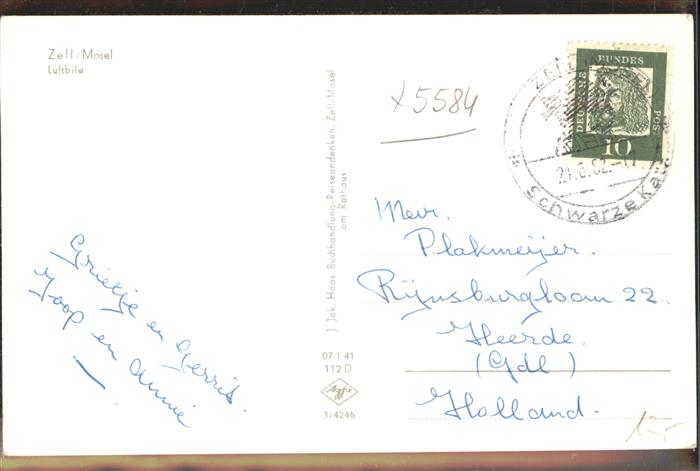 Zell/Mosel
Luftbild
x5584
ZELL
DEUTSCHE
BUNDES
POST
10
21.6.62.-17
Schwarze Katz
J. Jak. Haas, Buchhandlung-Reiseandenken, Zell/Mosel
am Rathaus
07 1 41
112 D
Agfa
3/4246
Grietje en Gerrit.
Joop en Annie
Mevr,
Plakmeijer.
Rijnsburgloan 22.
Heerde.
(Gdl)
Holland.
12,-